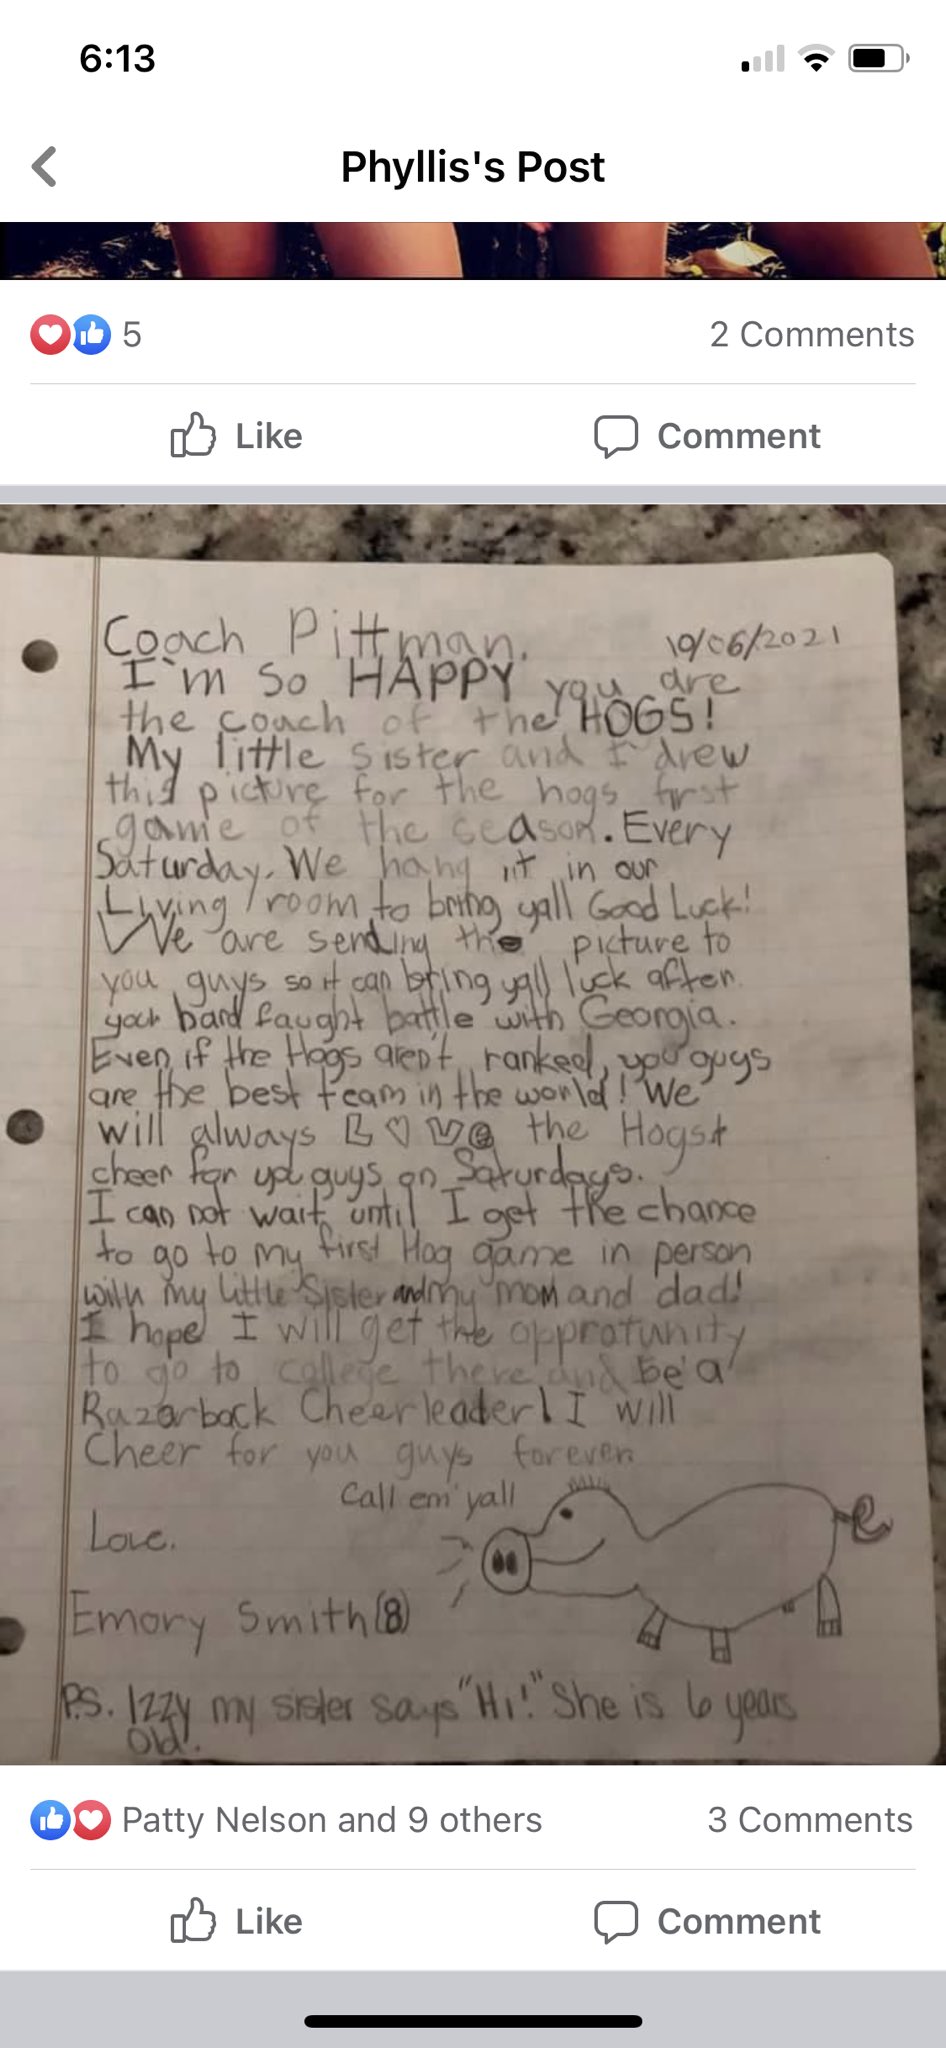 6:13
Phyllis's Post
5
2 Comments
Like
Comment
Coach Pittman,
10/06/2021
I'm so HAPPY you are
the coach of the HOGS!
My little sister and I drew
this picture for the hogs first
game of the season. Every
Saturday, We hang it in our
Living room to bring yall Good Luck!
We are sending the picture to
you guys so it can bring yall luck after
your hard faught battle with Georgia.
Even if the Hogs aren't ranked, you guys
are the best team in the world! We
will always L♡VE the Hogs &
cheer for you guys on Saturdays.
I can not wait until I get the chance
to go to my first Hog game in person
with my little Sister and my mom and dad!
I hope I will get the opprotunity
to go to college there and be a
Razorback Cheerleader! I will
Cheer for you guys forever
Call em' yall
Love,
Emory Smith (8)
P.S. Izzy my sister says "Hi!" She is 6 years
old!
Patty Nelson and 9 others
3 Comments
Like
Comment